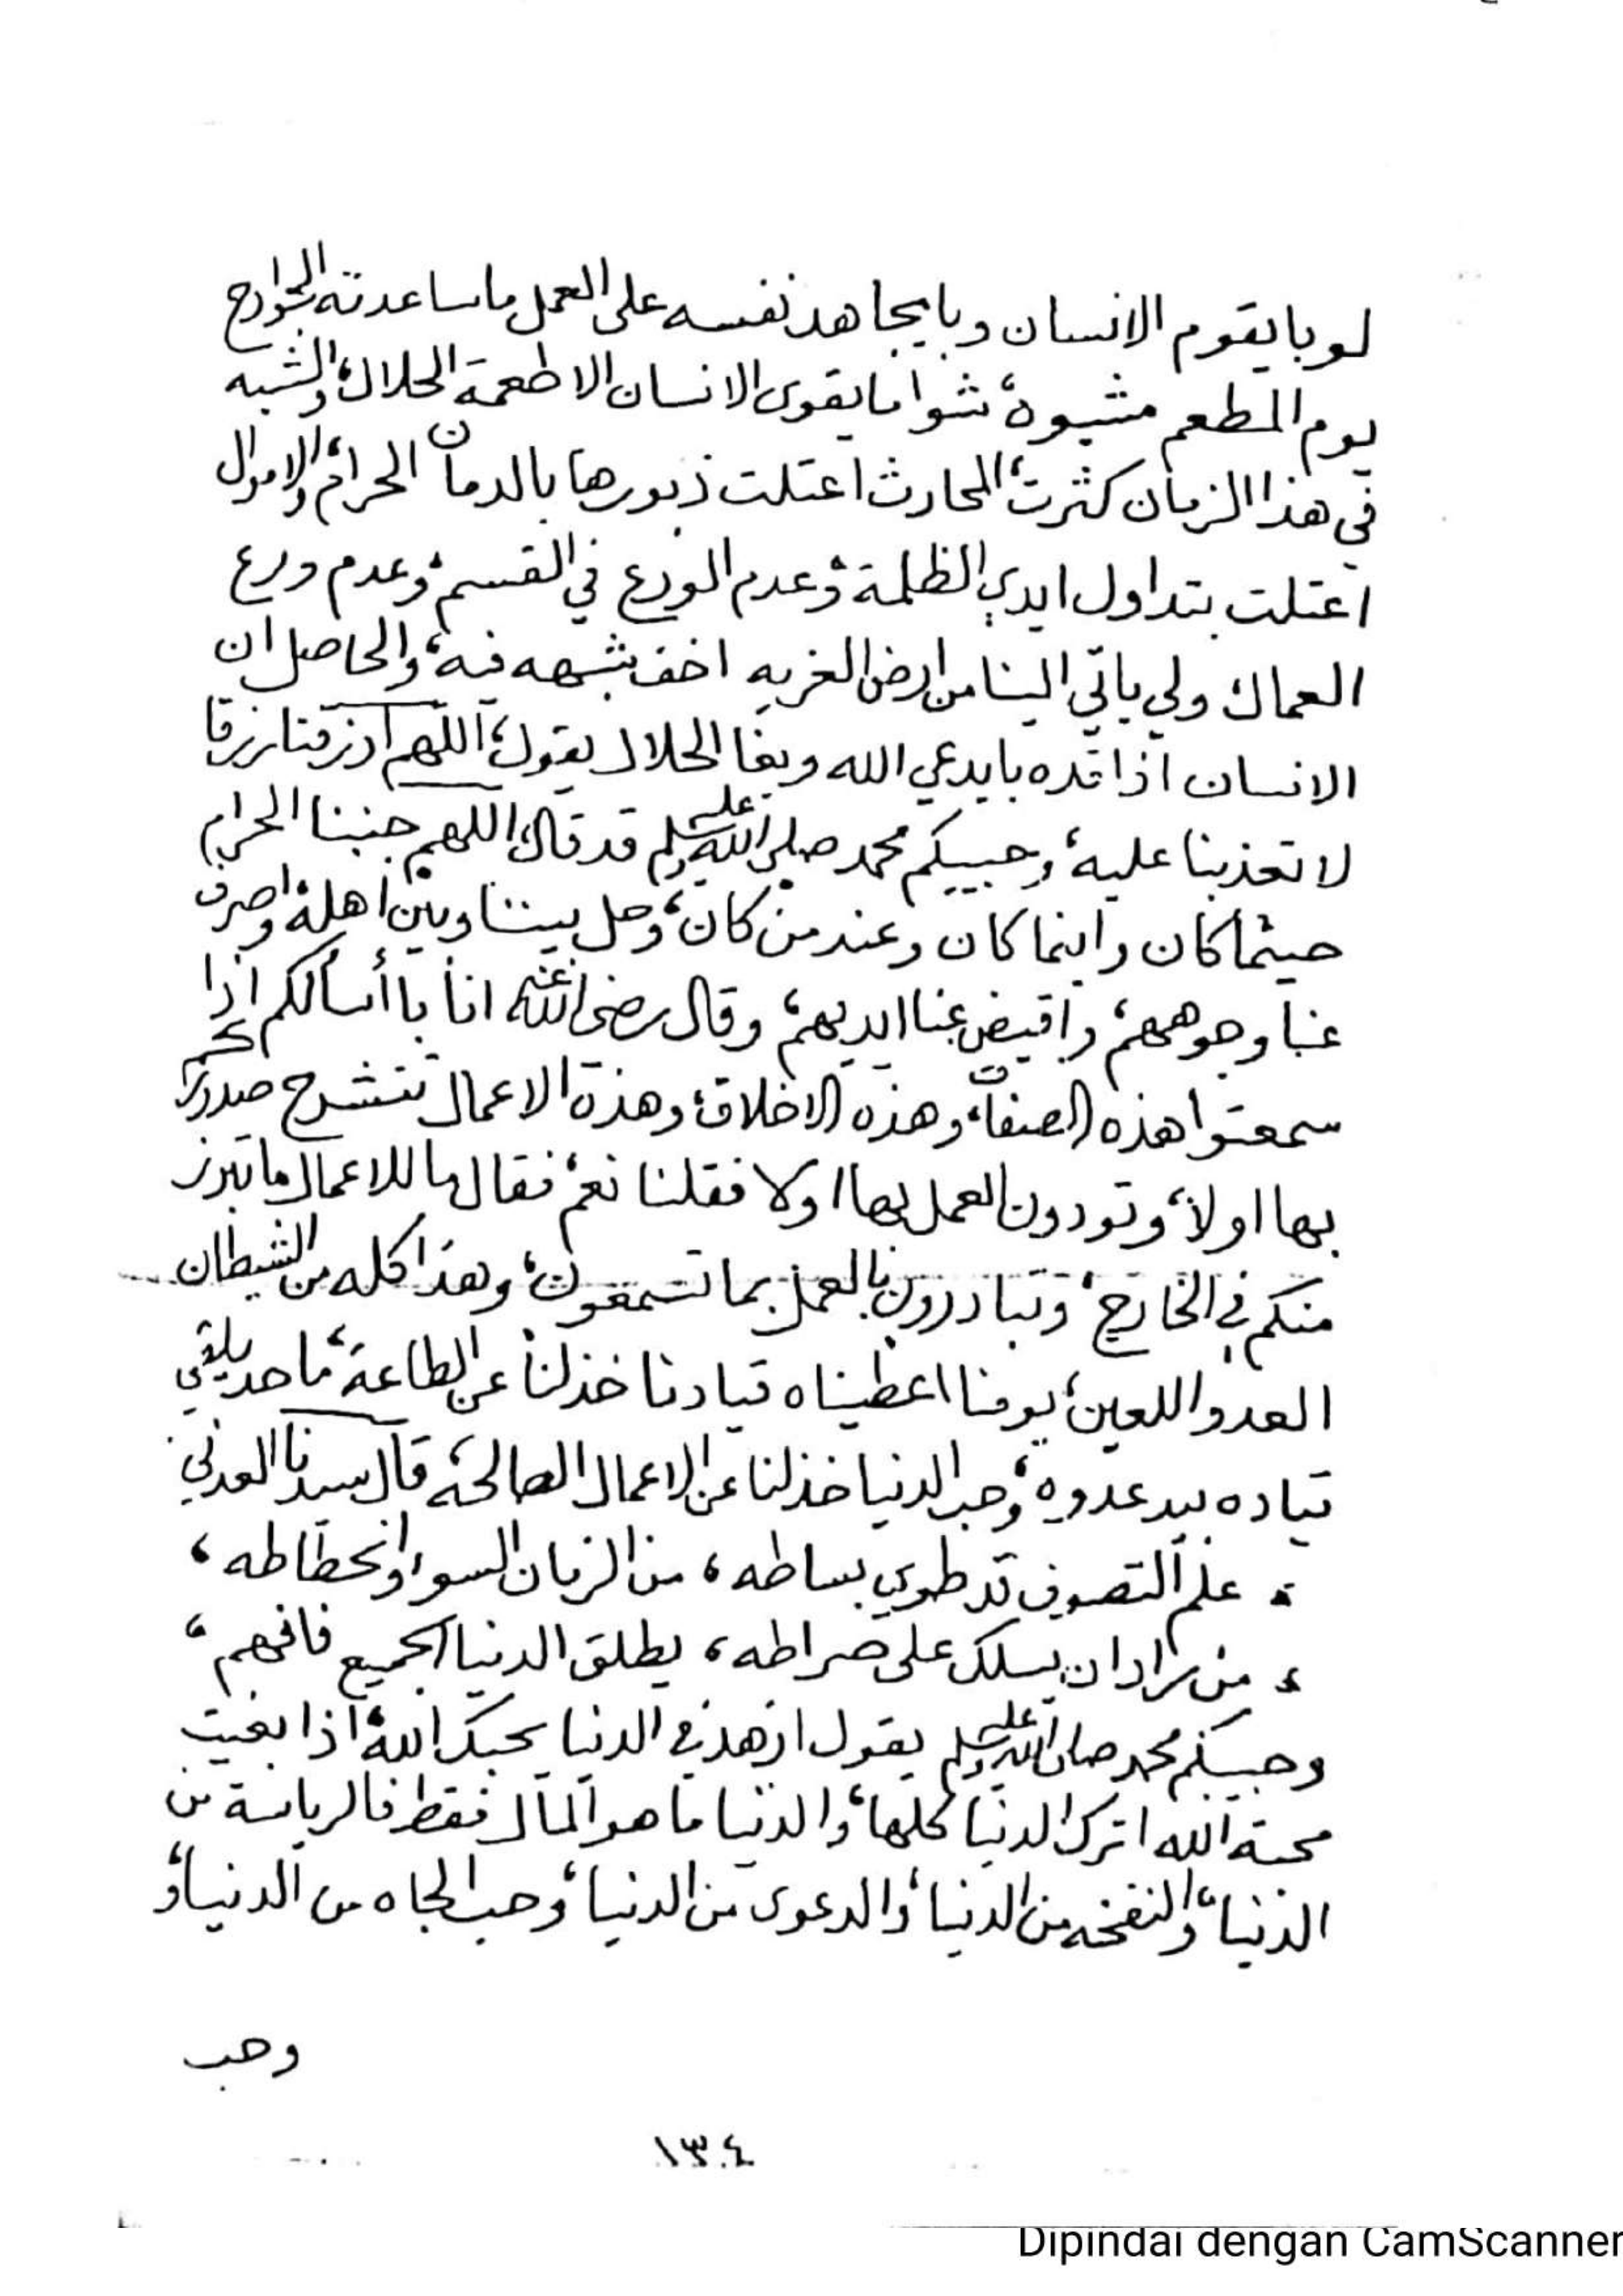 لو با يقوم الانسان وبا يجاهد نفسه على العمل ما ساعدته الجوارح
يوم المطعم مشبوه، شوا ما يقوى الانسان الا طعمة الحلال، والشبه
في هذا الزمان كثرت، المحارث اعتلت ذبورها بالدمان الحرام، والاموال
اعتلت بتداول ايدي الظلمة، وعدم الورع في القسم، وعدم ورع
العمال ولي ياتي الينا من ارض الغربه اخف بشبهه فيه، والحاصل ان
الانسان اذا قده بايدعي الله وبغا الحلال يقول، اللهم ارزقنا رزقا
لا تعذبنا عليه، وحبيبكم محمد صلى الله عليه وسلم قد قال، اللهم جنبنا الحرام
حيثما كان واينما كان وعند من كان، وحل بيننا وبين اهله، واصرف
عنا وجوههم، واقبض عنا ايديهم، وقال رضي الله عنه انا با أسألكم اذا
سمعتوا هذه الصفات، وهذه الاخلاق، وهذه الاعمال تنشرح صدوركم
بها اولا، وتودون العمل بها اولا فقلنا نعم، فقال ما للاعمال ما تبرز
منكم في الخارج، وتبادرون بالعمل بما تسمعون، وهذا كله من الشيطان
العدو اللعين، يومنا اعطيناه قيادنا خذلنا عن الطاعة، ما حد يلقي
قياده بيد عدوه، وحب الدنيا خذلنا عن الاعمال الصالحة، قال سيدنا العدني
، علم التصوف قد طوي بساطه ، من الزمان السوء وانحطاطه ،
، من راد ان يسلك على صراطه ، يطلق الدنيا الجميع فافهم ،
وحبيبكم محمد صلى الله عليه وسلم يقول ازهد في الدنيا يحبك الله، اذا بغيت
محبة الله اترك الدنيا كلها، والدنيا ما هو المال فقط فالرياسة من
الدنيا، والنفخه من الدنيا، والدعوى من الدنيا، وحب الجاه من الدنيا، و
وحب
١٣٠٤
Dipindai dengan CamScanner